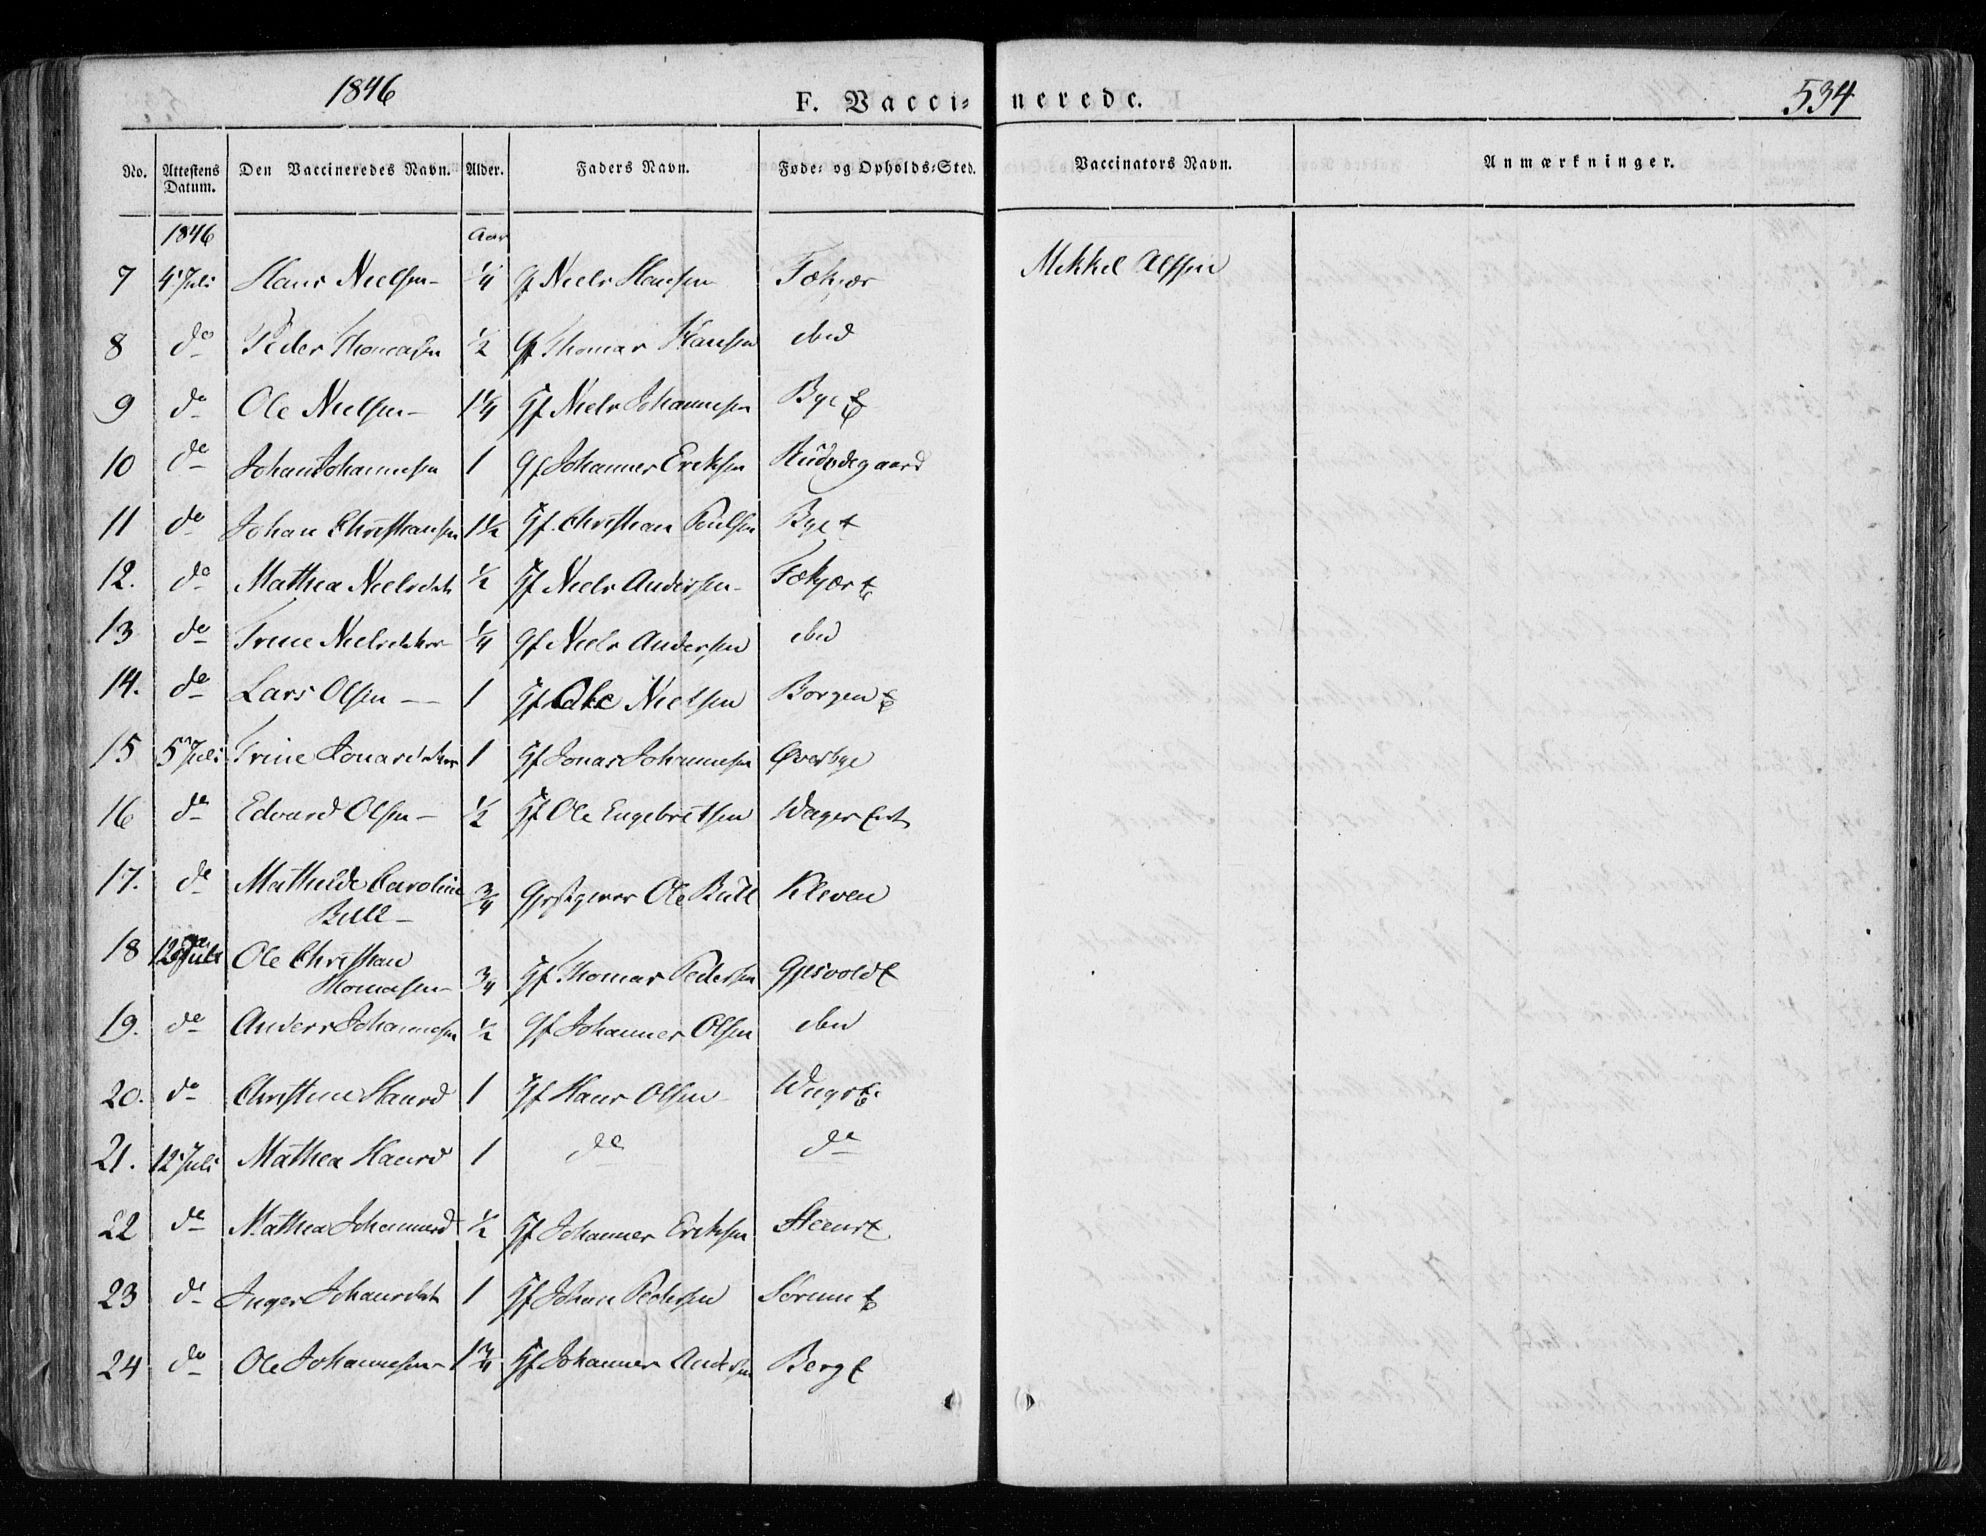 1846
F. Vaccinerede.
534
No. Attestens Datum. Den Vaccineredes Navn. Alder. Faders Navn. Føde- og Opholds-Sted. Vaccinators Navn. Anmærkninger.
1846 Aar
7 4 Juli Hans Nielsen 1/4 Gf Niels Hansen Mikkel
8 do Peder Thomasen 1/2 Gf Thomas Hansen ibid
9 do Ole Nielsen 1 1/4 Gf Niels Johannesen Bye
10 do Johan Johannesen 1 Gf Johannes Eriksen
11 do Johan Christiansen 1 1/2 Gf Christian Poulsen Bye
12. do Mathea Nielsdtr 1/2 Gf Niels Andersen
13 do Trine Nielsdtr 1/4 Gf Niels Andersen ibid
14. do Lars Olsen 1 Gf Ole Nielsen Borgen
15 5 Juli Trine 1 Gf Jonas Johannesen Øverbye
16 do Edvard Olsen 1/2 Gf Ole Engebretsen
17. do Mathilde Caroline
Bull 3/4 Ole Bull Kleven
18 12 Juli Ole Christian
Thomasen 3/4 Gf Thomas Pedersen
19. do Anders Johannesen 1/2 Gf Johannes Olsen ibid
20. do Christine Hansd 1 Gf Hans Olsen
21. 12 Juli Mathea Hansd 1 do do
22 do Mathea Johannesd 1/2 Gf Johannes Eriksen
23 do Inger 1 Gf Johan Pedersen
24 do Ole Johannesen 1 3/4 Gf Johannes Andersen Berg